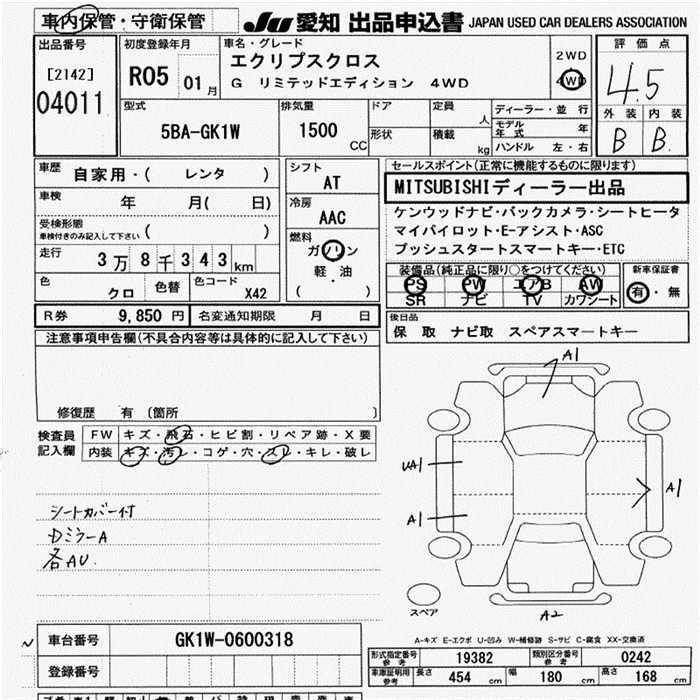 車内保管・守衛保管
JU 愛知 出品申込書 JAPAN USED CAR DEALERS ASSOCIATION
出品番号
[2142]
04011
初度登録年月
R05 01月
車名・グレード
エクリプスクロス
G リミテッドエディション 4WD
2WD
4WD
評価点
4.5
外装 内装
B B
型式
5BA-GK1W
排気量
1500 CC
ドア
形状
定員 人
積載 kg
ディーラー・並行
モデル年式 年
ハンドル 左・右
車歴
自家用・( レンタ )
車検
年 月( 日)
受検形態
車検付きのみ記入して下さい ( )
走行
3万8千343km
色
クロ
色替
色コード
X42
シフト
AT
冷房
AAC
燃料
ガソリン
軽・油
( )
セールスポイント(正常に機能するものに限ります)
MITSUBISHIディーラー出品
ケンウッドナビ・バックカメラ・シートヒータ
マイパイロット・E-アシスト・ASC
プッシュスタートスマートキー・ETC
装備品(純正品に限り○をつけてください)
PS PW エアB AW
SR ナビ TV カワシート
新車保証書
有・無
R券 9,850円 名変通知期限 月 日
後日品
保 取 ナビ取 スペアスマートキー
注意事項申告欄(不具合内容等は具体的に記入して下さい)
修復歴 有 〔箇所 〕
検査員記入欄
FW キズ・飛石・ヒビ割・リペア跡・X要
内装 キズ・汚レ・コゲ・穴・スレ・キレ・破レ
シートカバー付
DミラーA
各AU
A1
UA1
A1
A1
A2
スペア
A-キズ E-エクボ U-凹み W-補修跡 S-サビ C-腐食 XX-交換済
車台番号 GK1W-0600318
登録番号
形式指定番号 参考 19382 類別区分番号 参考 0242
車庫証明用 参考 長さ 454 cm 幅 180 cm 高さ 168 cm